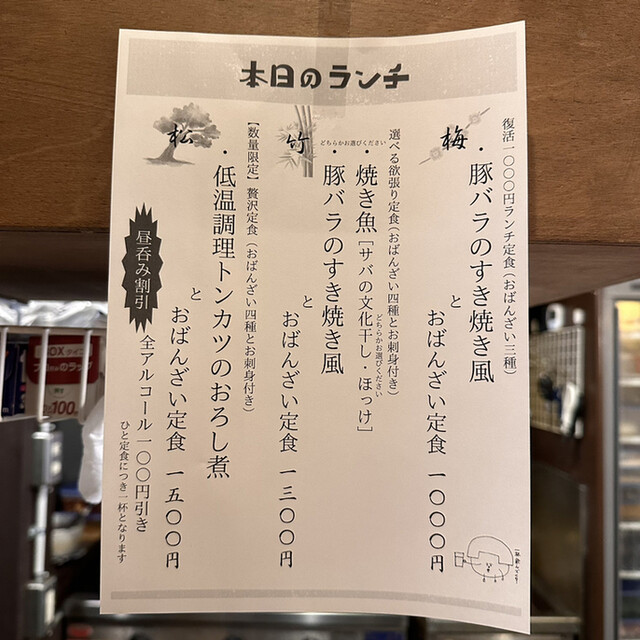 本日のランチ
復活一〇〇〇円ランチ定食(おばんざい三種)
梅
・豚バラのすき焼き風
と
おばんざい定食 一〇〇〇円
選べる欲張り定食(おばんざい四種とお刺身付き)
竹
どちらかお選びください
・焼き魚[サバの文化干し・ほっけ]
どちらかお選びください
・豚バラのすき焼き風
と
おばんざい定食 一三〇〇円
【数量限定】贅沢定食(おばんざい四種とお刺身付き)
松
・低温調理トンカツのおろし煮
と
おばんざい定食 一五〇〇円
昼呑み割引
全アルコール一〇〇円引き
ひと定食につき一杯となります